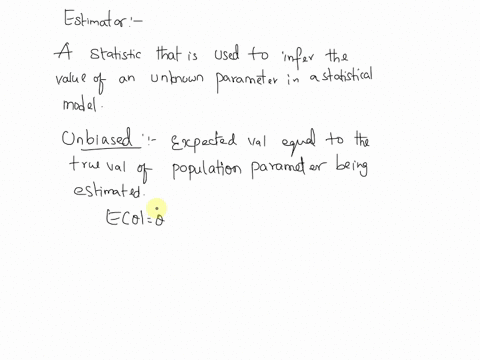 Estimator:-
A statistic that is used to infer the
value of an unknown parameter in a statistical
model.
Unbiased :- Expected val equal to the
true val of population parameter being
estimated.
E(θ)=θ